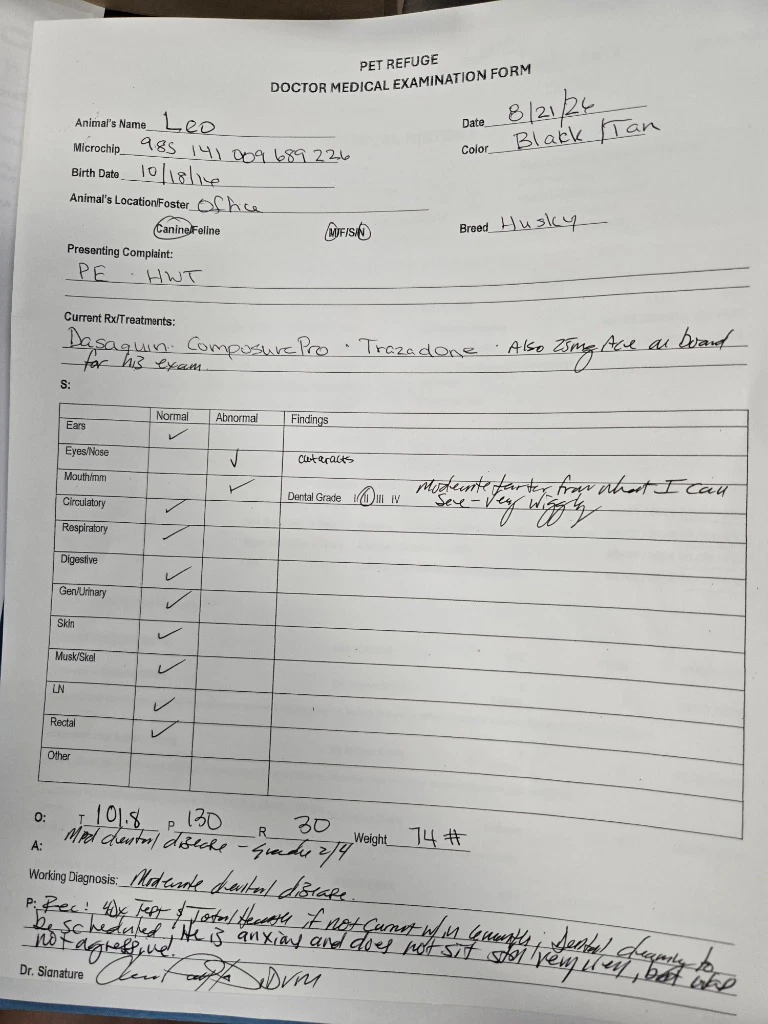 PET REFUGE
DOCTOR MEDICAL EXAMINATION FORM
Animal's Name Leo Date 8/21/26
Microchip 985 141 009 689 226 Color Black/Tan
Birth Date 10/18/16
Animal's Location/Foster Office
Canine/Feline M/F/S/N Breed Husky
Presenting Complaint:
PE · HWT
Current Rx/Treatments:
Dasaquin · ComposurePro · Trazadone · Also 25mg Ace on board
for his exam
S:
Normal Abnormal Findings
Ears ✓
Eyes/Nose ✓ cataracts
Mouth/mm ✓ Dental Grade I/II/III IV Moderate tartar from what I can
see - very wiggly
Circulatory ✓
Respiratory ✓
Digestive ✓
Gen/Urinary ✓
Skin ✓
Musk/Skel ✓
LN ✓
Rectal ✓
Other
O: T 101.8 P 130 R 30 Weight 74 #
A: Mod dental disease - grade 2/4
Working Diagnosis: Moderate dental disease.
P: Rec: 4Dx Test & Total if not current w/in; Dental cleaning to
be scheduled. He is anxious and does not sit still very well, but was
not aggressive!
Dr. Signature DVM